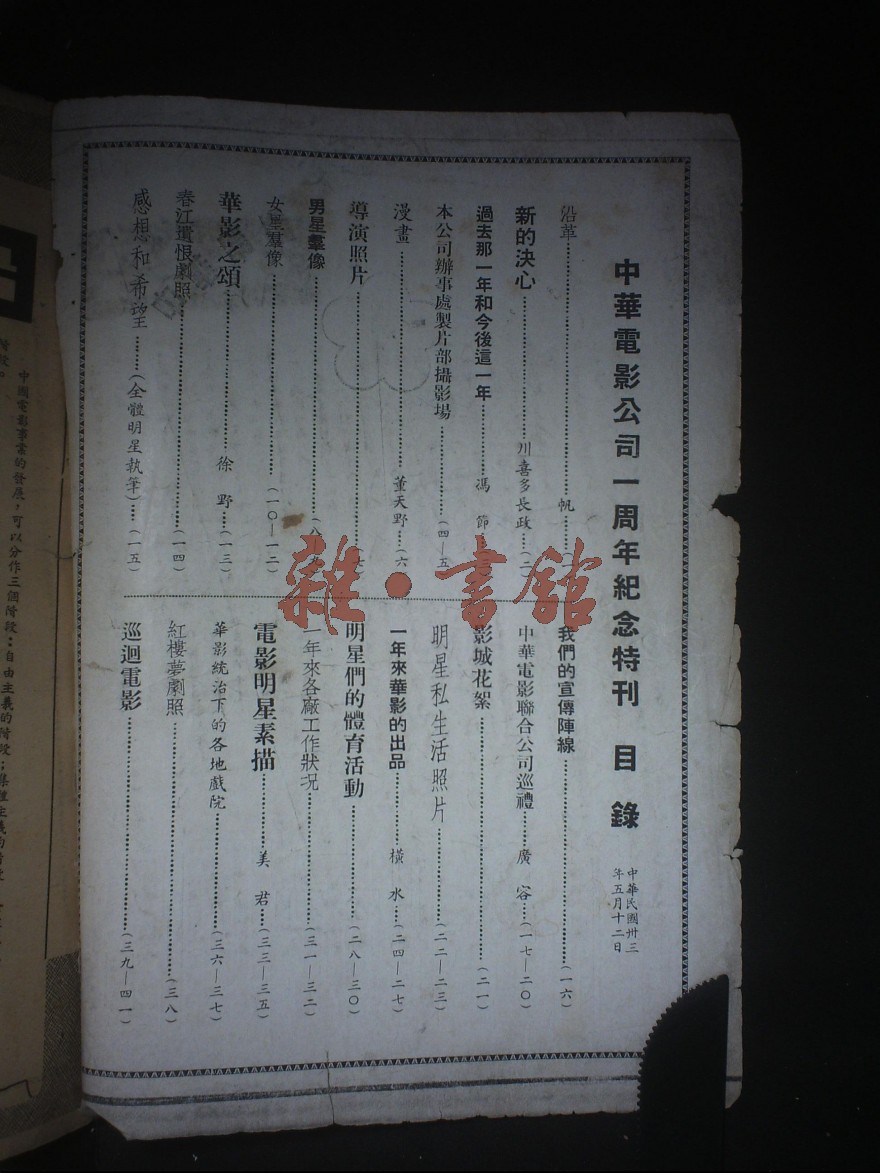 中華電影公司一周年紀念特刊 目錄
中華民國卅三
年五月十二日
沿革………帆……
新的決心………川喜多長政…(二
過去那一年和今後這一年………馮 節
本公司辦事處製片部攝影場………(四—五
漫畫………董天野…(六
導演照片………七
男星羣像………(八
女星羣像………(一〇—一二)
華影之頌………徐 野…(一三)
春江遺恨劇照………(一四)
感想和希望………(全體明星執筆)…(一五)
我們的宣傳陣線………(一六)
中華電影聯合公司巡禮………廣 容…(一七—二〇)
影城花絮………(二一)
明星私生活照片………(二二—二三)
一年來華影的出品………橫 水…(二四—二七)
明星們的體育活動………(二八—三〇)
一年來各廠工作狀況………(三一—三二)
電影明星素描………美 君…(三三—三五)
華影統治下的各地戲院………(三六—三七)
紅樓夢劇照………(三八)
巡迴電影………(三九—四一)
雜·書館
中國電影事業的發展，可以分作三個階段：自由主義的階段；集
階段。